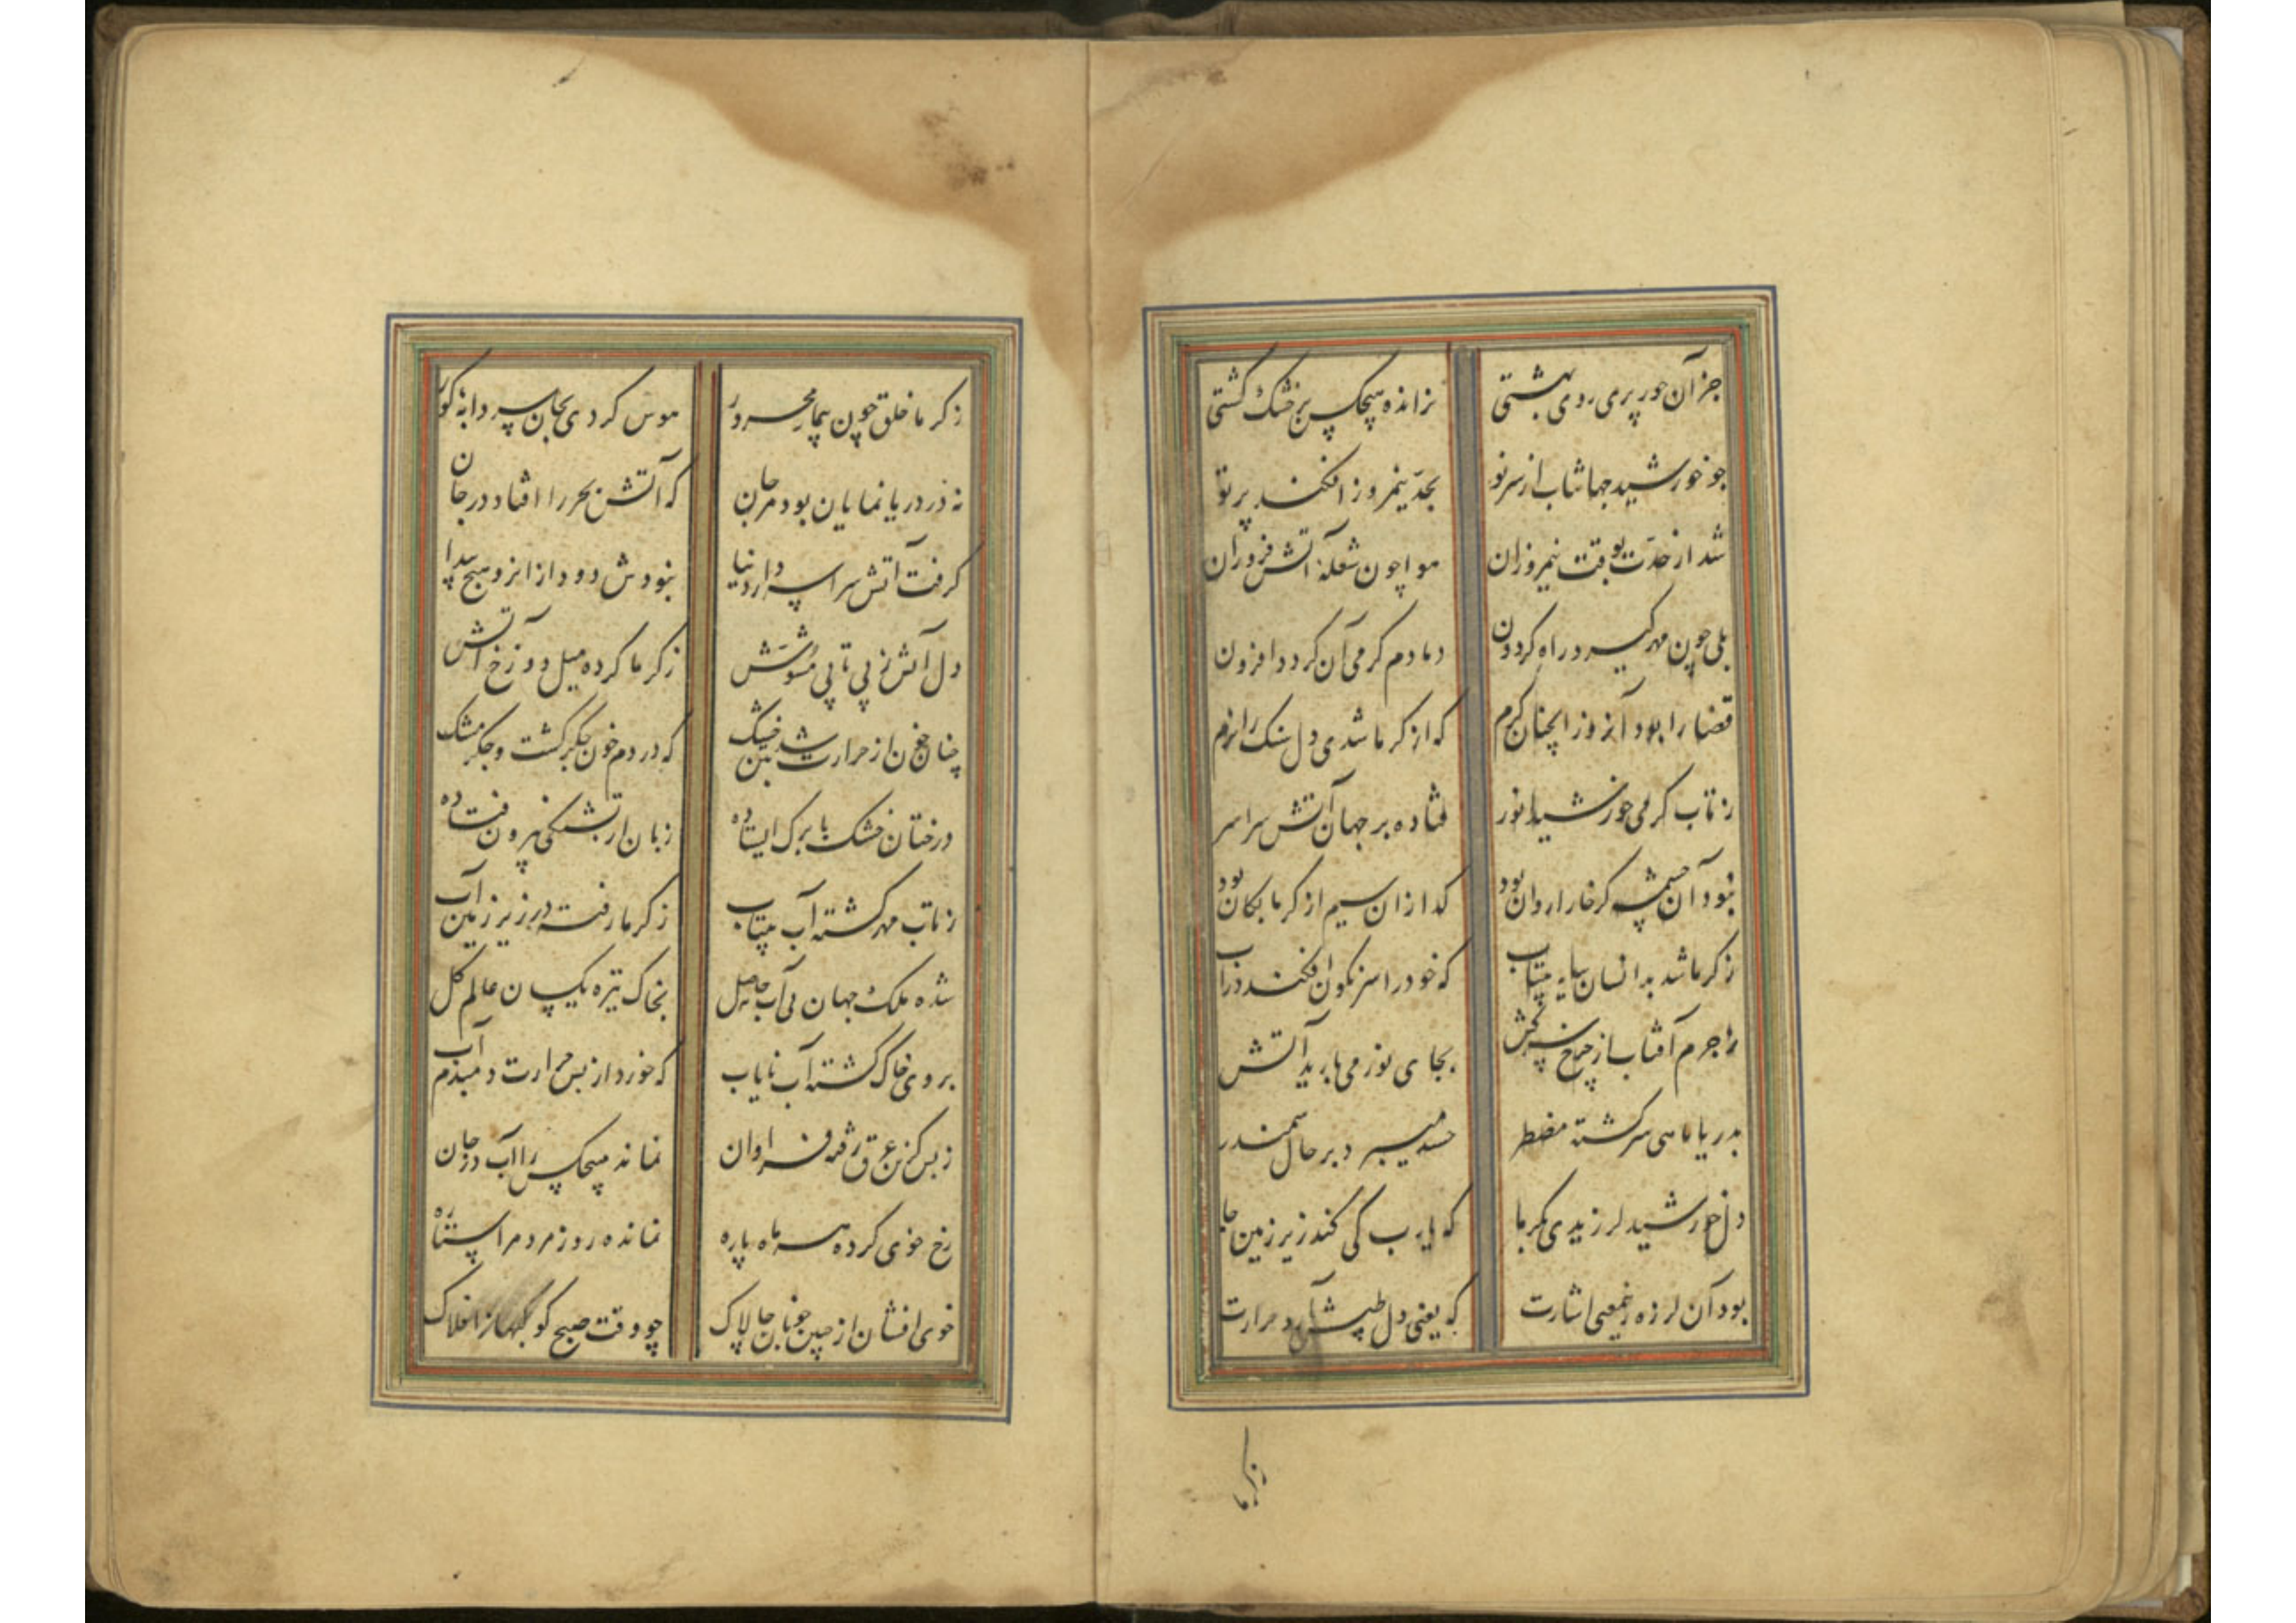 جز آن حور پری روی بهشتی
نرانده هیچکس بر خشک کشتی
چو خورشید جهانتاب از سر نو
بحد نیمروز افکند پرتو
شد از حدت بوقت نیمروزان
هوا چون شعله آتش فروزان
بلی چون مهر گیرد راه گردون
دمادم گرمی آن گردد افزون
قضا را بود آنروز آنچنان گرم
که از گرما شدی دل سنگ را نرم
ز تاب گرمی خورشید انور
فتاده بر جهان آتش سراسر
نبود آن چشمه کز خارا روان بود
گدازان سیم از گرما بکان بود
ز گرما شد بدانسان سایه بیتاب
که خود را سرنگون افکند در آب
جرم آفتاب از چرخ سرکش
بجای نور می بارید آتش
بدریا ماهی سرگشته مضطر
حسد میبرد بر حال سمندر
دل خورشید لرزیدی ز گرما
که یارب کی کند زیر زمین جا
بود آن لرزه معنی اشارت
که یعنی دل طپش دارد حرارت
زگرما
ز گرما خلق چون بیمار محرور
هوس کردی بجان سردابه گور
نه در دریا نمایان بود مرجان
که آتش بحر را افتاد در جان
گرفت آتش سراپا دار دنیا
نبودش دود ازانرو هیچ پیدا
دل آتش ز پی تا پی مشوش
ز گرما کرده میل دوزخ آتش
چنان خون از حرارت شد خشک
که در دم خون جگر گشت و جگر مشک
درختان خشک با برگ ایستاده
زبان از تشنگی بیرون فتاده
ز تاب مهر گشته آب بیتاب
ز گرما رفته در زیر زمین آب
شده ملک جهان بی آب حاصل
بخاک تیره یکسان عالم گل
بروی خاک گشته آب نایاب
که خورد از بس حرارت دمبدم آب
ز بس کز تن عرق رفته فراوان
نمانده هیچکس را آب در جان
رخ خوی کرده هر ماه پاره
نمانده روز مردم را ستاره
خوی افشان از جبین خوبان چالاک
چو وقت صبح کوکبها ز افلاک